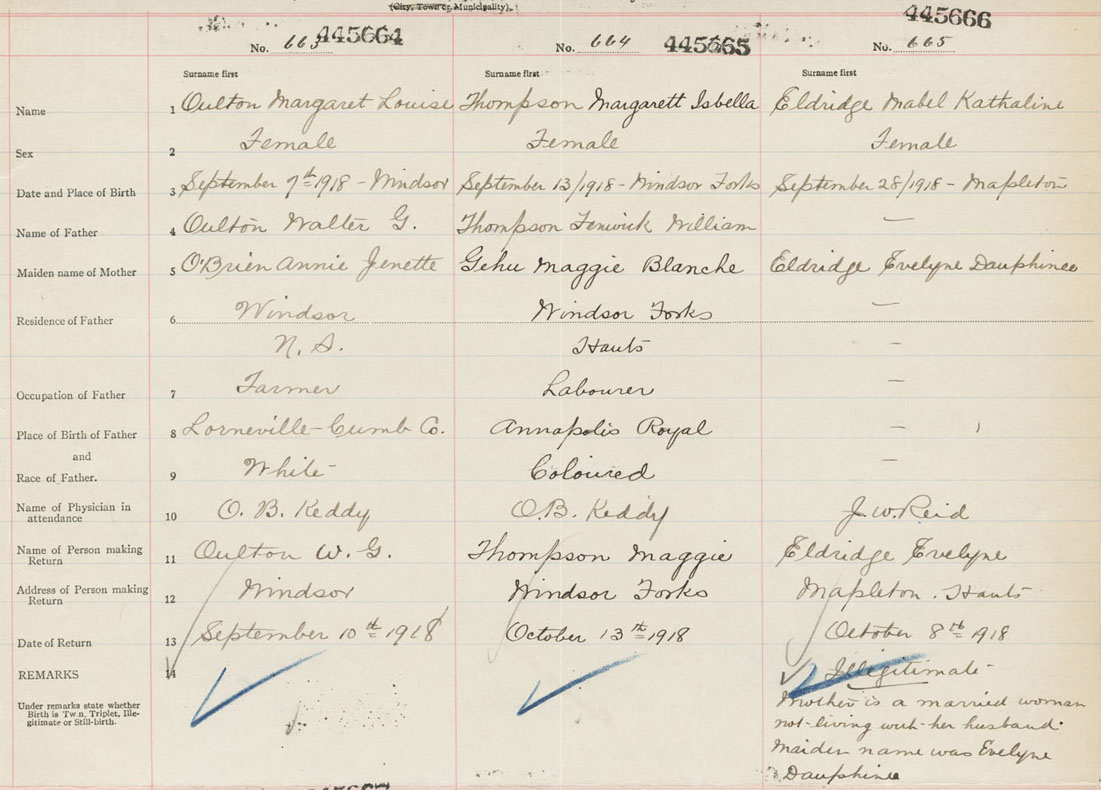 (City, Town or Municipality).
No. 663 445664 No. 664 445665 No. 665 445666
Surname first Surname first Surname first
Name 1 Oulton Margaret Louise Thompson Margarett Isbella Eldridge Mabel Kathaline
Sex 2 Female Female Female
Date and Place of Birth 3 September 7th 1918 - Windsor September 13/1918 - Windsor Forks September 28/1918 - Mapleton
Name of Father 4 Oulton Walter G. Thompson Fenwick William —
Maiden name of Mother 5 O'Brien Annie Jenette Gehu Maggie Blanche Eldridge Evelyne Dauphinee
Residence of Father 6 Windsor Windsor Forks —
N. S. Hants —
Occupation of Father 7 Farmer Labourer —
Place of Birth of Father 8 Lorneville - Cumb Co. Annapolis Royal —
and
Race of Father. 9 White Coloured —
Name of Physician in
attendance 10 O. B. Keddy O.B. Keddy J. W. Reid
Name of Person making
Return 11 Oulton W. G. Thompson Maggie Eldridge Evelyne
Address of Person making
Return 12 Windsor Windsor Forks Mapleton. Hants
Date of Return 13 September 10th 1918 October 13th 1918 October 8th 1918
REMARKS 14 Illegitimate
Under remarks state whether
Birth is Twin, Triplet, Ille-
gitimate or Still-birth.
Mother is a married woman
not living with her husband
Maiden name was Evelyne
Dauphinee